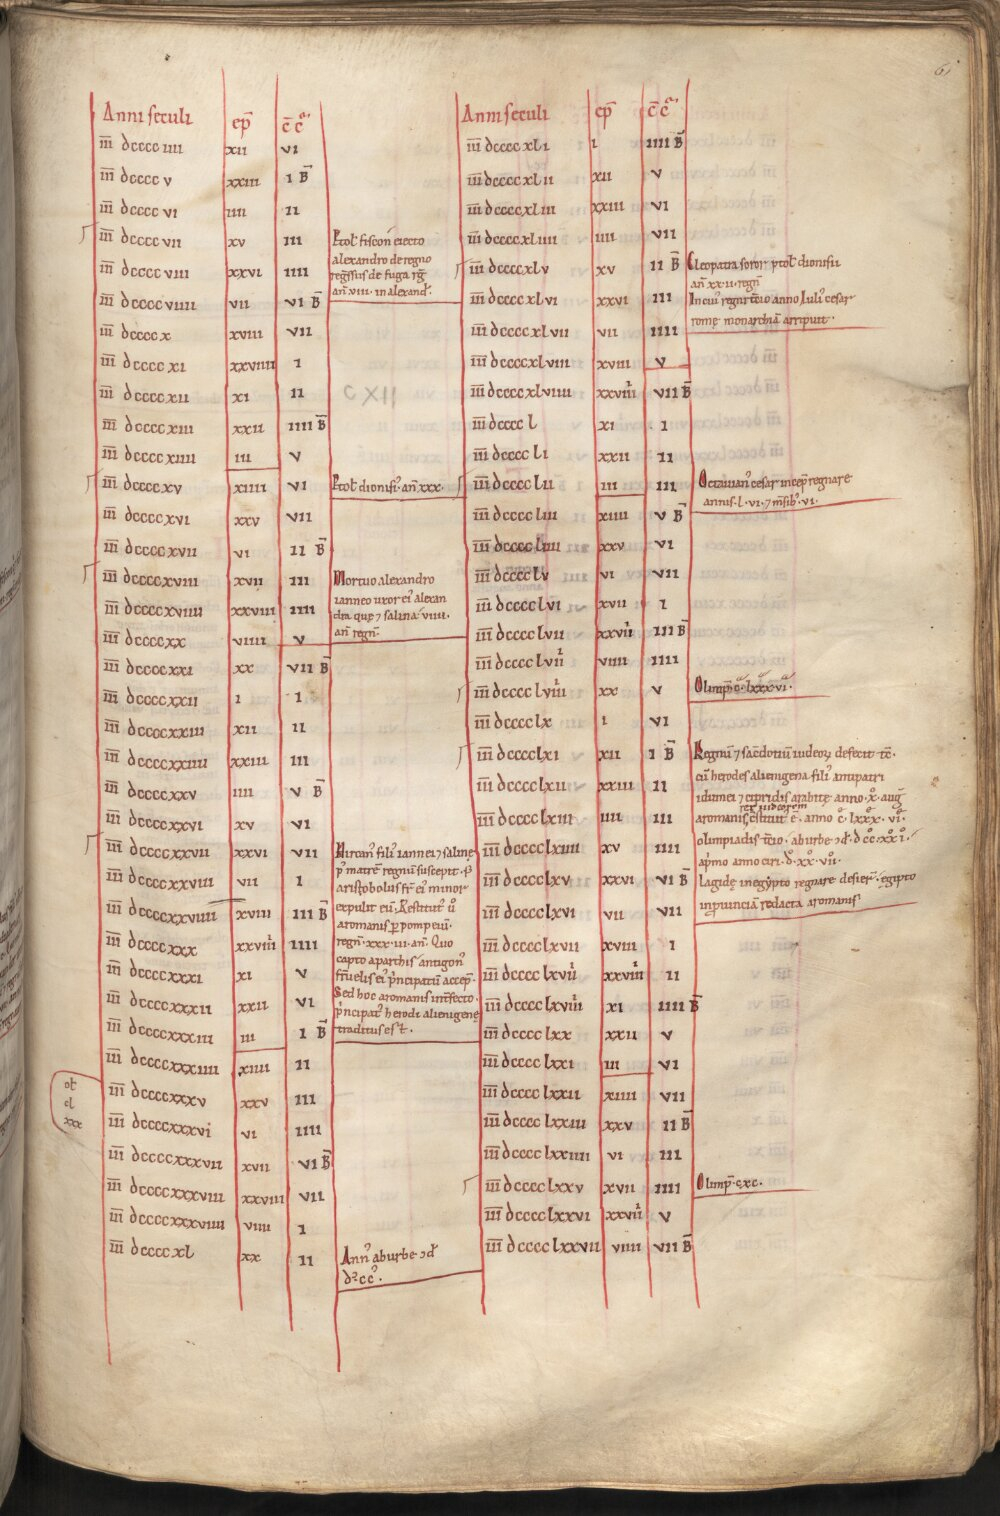 61
Anni seculi ep̄ c̄ c̄
iii̅ dcccc iiii xii vi
iii̅ dcccc v xxiii i B̄
iii̅ dcccc vi iiii ii
iii̅ dcccc vii xv iii
iii̅ dcccc viii xxvi iiii
iii̅ dcccc viiii vii vi B̄
iii̅ dcccc x xviii vii
iii̅ dcccc xi xxviiii i
iii̅ dcccc xii xi ii
iii̅ dcccc xiii xxii iiii B̄
iii̅ dcccc xiiii iii v
iii̅ dcccc xv xiiii vi
iii̅ dcccc xvi xxv vii
iii̅ dcccc xvii vi ii B̄
iii̅ dcccc xviii xvii iii
iii̅ dcccc xviiii xxviii iiii
iii̅ dcccc xx viiii v
iii̅ dcccc xxi xx vii B̄
iii̅ dcccc xxii i i
iii̅ dcccc xxiii xii ii
iii̅ dcccc xxiiii xxiii iii
iii̅ dcccc xxv iiii v B̄
iii̅ dcccc xxvi xv vi
iii̅ dcccc xxvii xxvi vii
iii̅ dcccc xxviii vii i
iii̅ dcccc xxviiii xviii iii B̄
iii̅ dcccc xxx xxviiii iiii
iii̅ dcccc xxxi xi v
iii̅ dcccc xxxii xxii vi
iii̅ dcccc xxxiii iii i B̄
iii̅ dcccc xxxiiii xiiii ii
iii̅ dcccc xxxv xxv iii
iii̅ dcccc xxxvi vi iiii
iii̅ dcccc xxxvii xvii vi B̄
iii̅ dcccc xxxviii xxviii vii
iii̅ dcccc xxxviiii viiii i
iii̅ dcccc xl xx ii
Ptol' fiscon eiecto
alexandro de regno
regssus de fuga rg̅
an̅ viii. in alexand'.
Ptol' dionisi' an̅ xxx.
Mortuo alexandro
ianneo uxor ei' alexan
dra quę ⁊ salina viiii.
an̅ regn̅.
Hircan' fili' iannei ⁊ saline
p' matrē regnū suscepit. s̄
aristobolus fr̄ ei' minor
expulit eū. Restitut' ū
aromanis p̲ pompeiū.
regn̅. xxx. iii. an̅. Quo
capto aparthis antigon'
fr̄uelis ei' p'ncipatū accep̄.
Sed hoc aromanis int̄fecto.
p'ncipat' herodi alienigenę
traditus est.
Ann' aburbe ↄd'
dcc'.
ol
cl
xxx
Anni seculi ep̄ c̄ c̄
iii̅ dcccc xli i iiii B̄
iii̅ dcccc xlii xii v
iii̅ dcccc xliii xxiii vi
iii̅ dcccc xliiii iiii vii
iii̅ dcccc xlv xv ii B̄
iii̅ dcccc xlvi xxvi iii
iii̅ dcccc xlvii vii iiii
iii̅ dcccc xlviii xviii v
iii̅ dcccc xlviiii xxviiii vii B̄
iii̅ dcccc l xi i
iii̅ dcccc li xxii ii
iii̅ dcccc lii iii iii
iii̅ dcccc liii xiiii v B̄
iii̅ dcccc liiii xxv vi
iii̅ dcccc lv vi vii
iii̅ dcccc lvi xvii i
iii̅ dcccc lvii xxviii iii B̄
iii̅ dcccc lviii viiii iiii
iii̅ dcccc lviiii xx v
iii̅ dcccc lx i vi
iii̅ dcccc lxi xii i B̄
iii̅ dcccc lxii xxiii ii
iii̅ dcccc lxiii iiii iii
iii̅ dcccc lxiiii xv iiii
iii̅ dcccc lxv xxvi vi B̄
iii̅ dcccc lxvi vii vii
iii̅ dcccc lxvii xviii i
iii̅ dcccc lxviii xxviiii ii
iii̅ dcccc lxviiii xi iiii B̄
iii̅ dcccc lxx xxii v
iii̅ dcccc lxxi iii vi
iii̅ dcccc lxxii xiiii vii
iii̅ dcccc lxxiii xxv ii B̄
iii̅ dcccc lxxiiii vi iii
iii̅ dcccc lxxv xvii iiii
iii̅ dcccc lxxvi xxviii v
iii̅ dcccc lxxvii viiii vii B̄
Cleopatra soror ptol' dionisii
an̅ xx.ii. regn̅
In cui' regni t̄cio anno Iuli' cesar
romę monarchiā arripuit.
Octauian' cesar incep̄ regnare
annis. l. vi. ⁊ m̅sib' vi.
Olimp̄. c. lxxx. vi.
Regnū ⁊ sac̄dotiū iudeoꝝ defecit t̄c.
cū herodes alienigena fili' antipatri
idumei ⁊ cipridis arabitę anno. x. aug̅
rex iudeorum
aromanis c̄stitut' ē. anno c. lxxx. vi.
olimpiadis t̄cio. aburbe ↄd'. dccxxi.
ap'mo anno ciri. d. xx. vii.
Lagidę in egypto regnare desier̄. egipto
in puincia redacta aromanis.
Olimp̄. cxc.